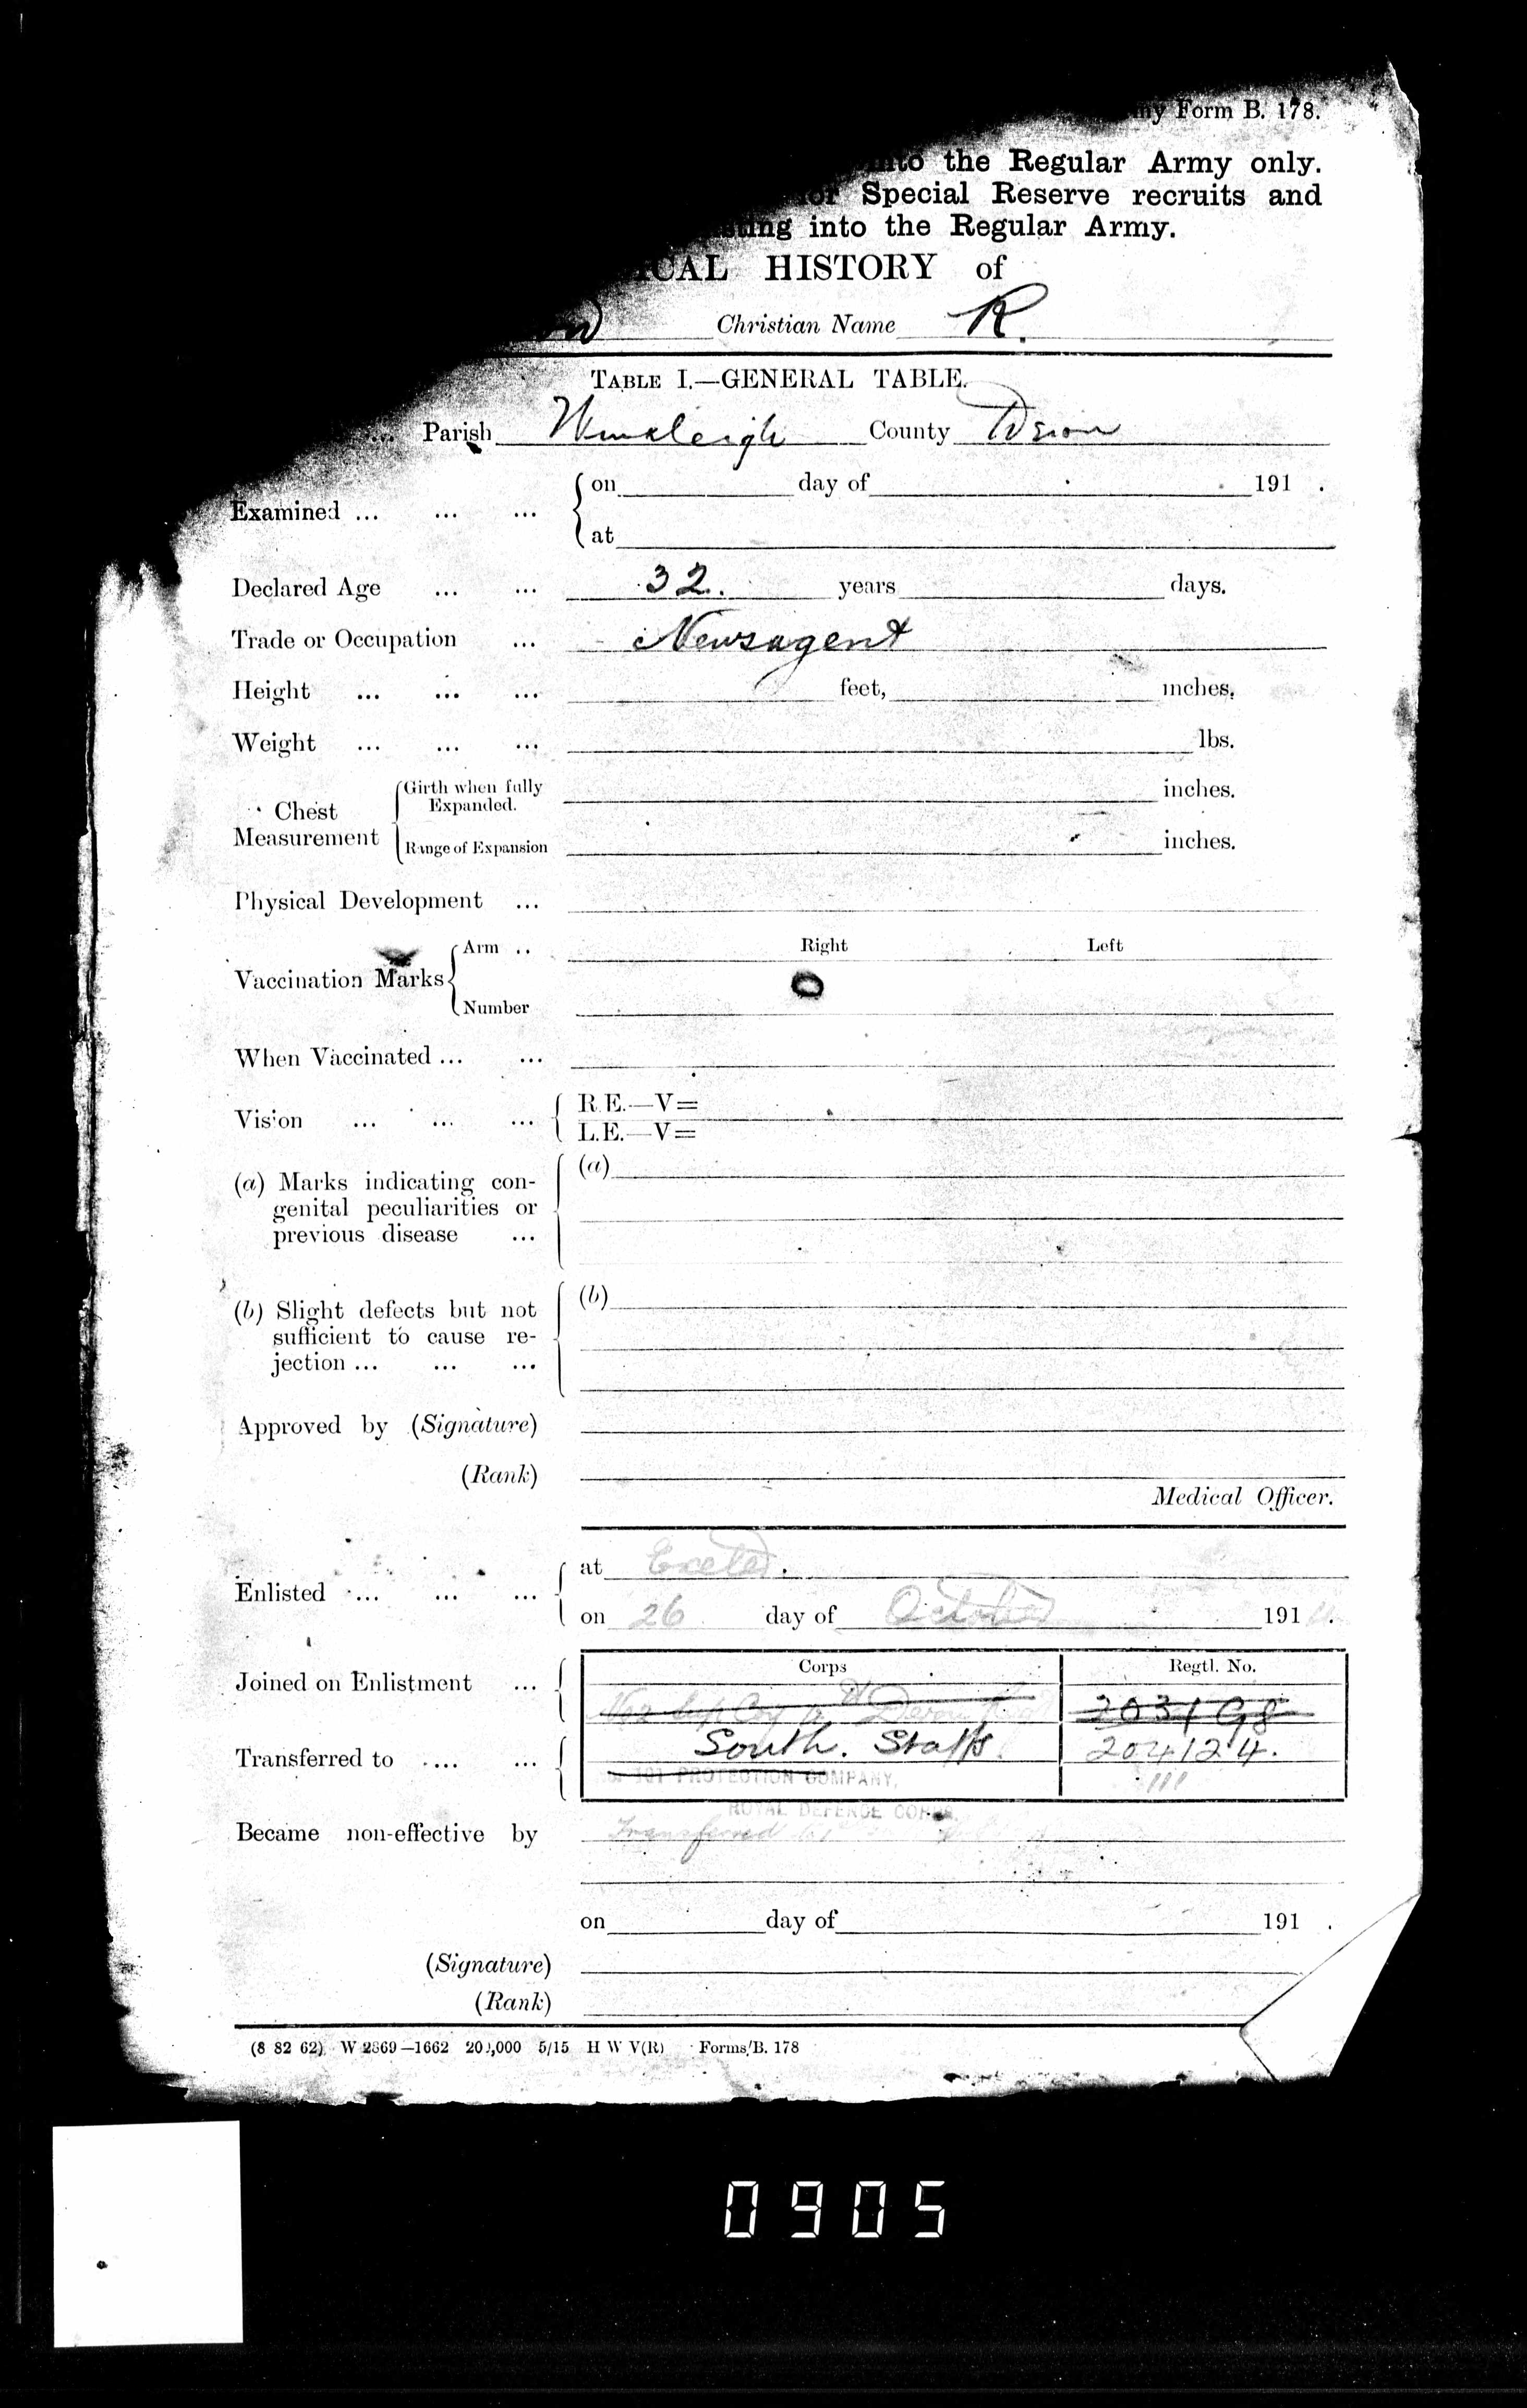 Form B. 178.
the Regular Army only.
Special Reserve recruits and
into the Regular Army.
HISTORY of
Christian Name R.
TABLE I.—GENERAL TABLE.
... Parish Winkleigh County Devon
Examined ... ... ... on day of 191 .
at
Declared Age ... ... 32. years days.
Trade or Occupation ... Newsagent
Height ... ... ... feet, inches.
Weight ... ... ... lbs.
Chest Measurement Girth when fully Expanded. inches.
Range of Expansion inches.
Physical Development ...
Vaccination Marks Arm .. Right Left
Number 0
When Vaccinated ... ...
Vision ... ... ... R.E.—V=
L.E.—V=
(a) Marks indicating con- (a)
genital peculiarities or
previous disease ...
(b) Slight defects but not (b)
sufficient to cause re-
jection ... ... ...
Approved by (Signature)
(Rank)
Medical Officer.
Enlisted ... ... ... at Exeter.
on 26 day of October 191 .
Corps Regtl. No.
Joined on Enlistment ... Coy Devon
Transferred to .... ... South. Staffs. 204124.
PROTECTION COMPANY,
ROYAL DEFENCE CORPS.
Became non-effective by Transferred
on day of 191 .
(Signature)
(Rank)
(8 82 62) W 2869—1662 200,000 5/15 H W V(R) Forms/B. 178
0905